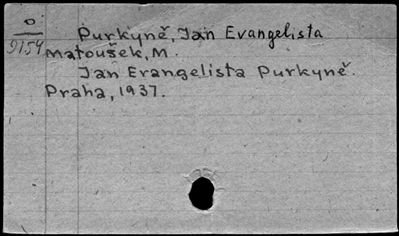 o
9154
Purkyně, Jan Evangelista
Matoušek, M.
Jan Evangelista Purkyně.
Praha, 1937.